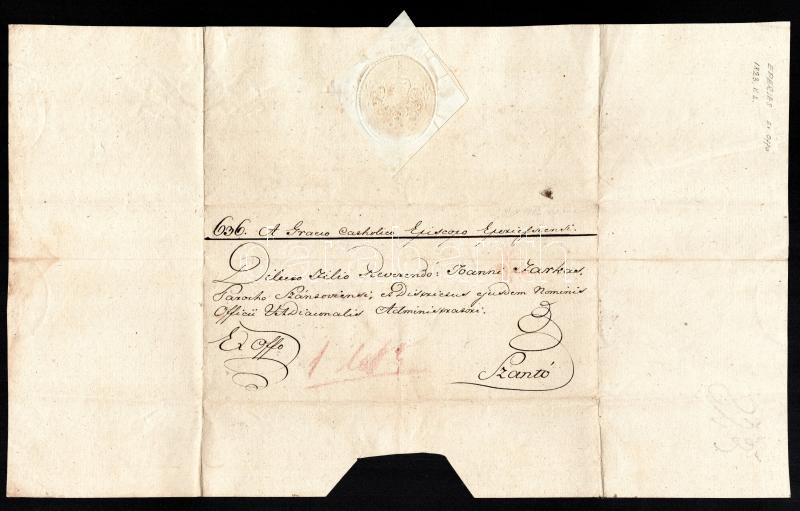 636. A Graeco Catholico Episcopo Eperiessiensi.
Dilecto Filio Reverendo: Joanni Farkas,
Parocho Szantoviensi, et Districtus ejusdem Nominis
Officii VADiaconalis Administratori.
Ex Offo
Szantó
EPERJES Ex Offo
1823.